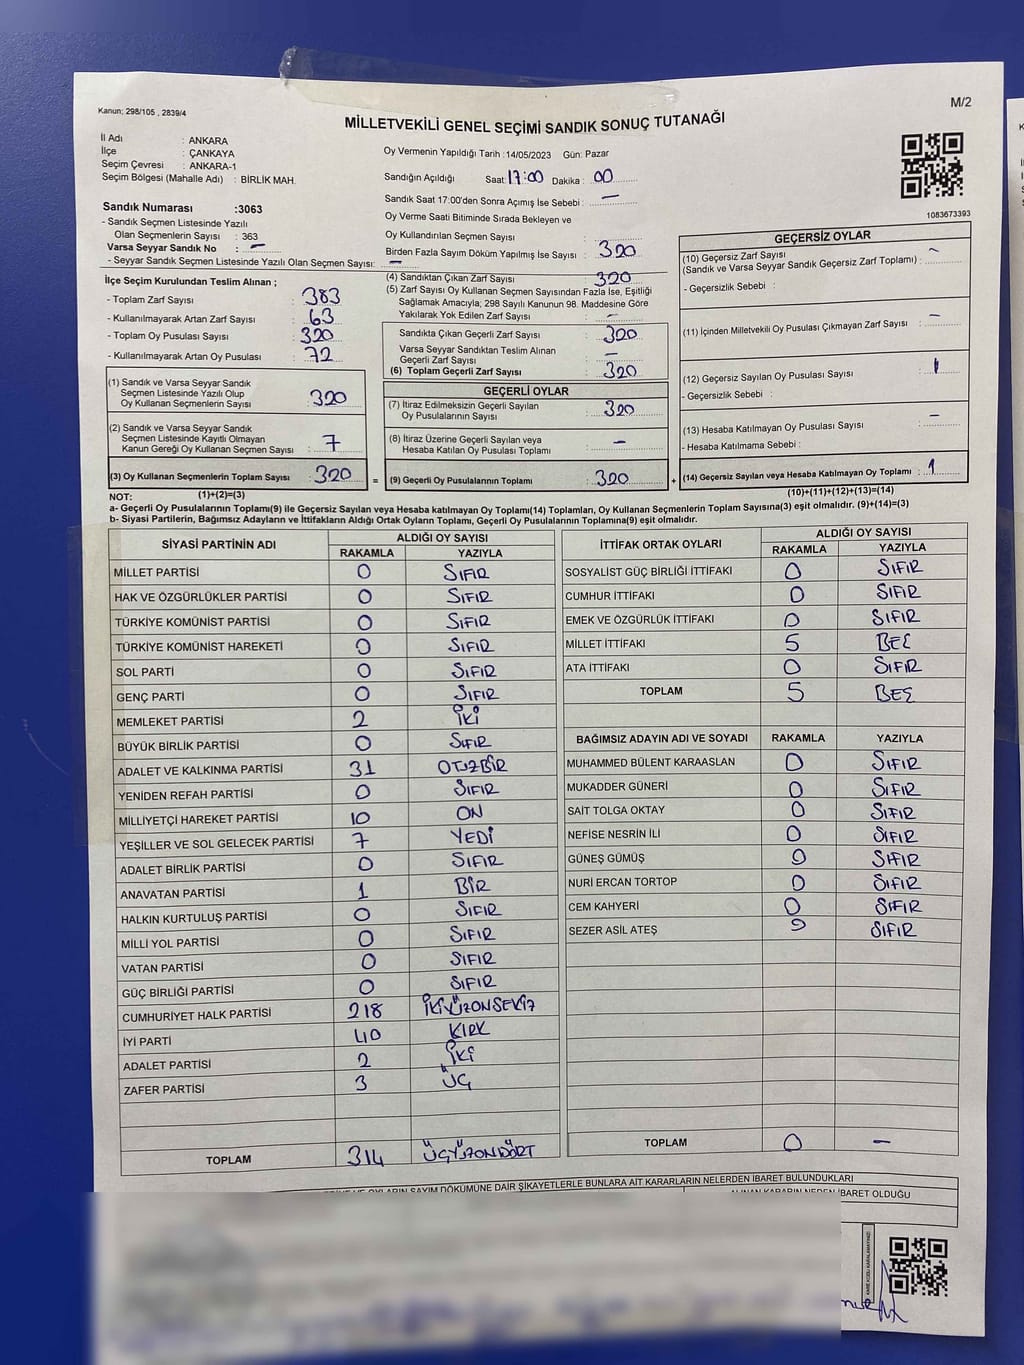 M/2
Kanun; 298/105 , 2839/4
MİLLETVEKİLİ GENEL SEÇİMİ SANDIK SONUÇ TUTANAĞI
İl Adı : ANKARA
İlçe : ÇANKAYA
Seçim Çevresi : ANKARA-1
Seçim Bölgesi (Mahalle Adı) : BİRLİK MAH.
Sandık Numarası :3063
- Sandık Seçmen Listesinde Yazılı
Olan Seçmenlerin Sayısı : 363
Varsa Seyyar Sandık No : -
- Seyyar Sandık Seçmen Listesinde Yazılı Olan Seçmen Sayısı: -
Oy Vermenin Yapıldığı Tarih : 14/05/2023 Gün: Pazar
Sandığın Açıldığı Saat: 17:00 Dakika : 00
Sandık Saat 17:00'den Sonra Açımış İse Sebebi : -
Oy Verme Saati Bitiminde Sırada Bekleyen ve
Oy Kullandırılan Seçmen Sayısı :
Birden Fazla Sayım Döküm Yapılmış İse Sayısı : 320
1083673393
İlçe Seçim Kurulundan Teslim Alınan ;
- Toplam Zarf Sayısı : 383
- Kullanılmayarak Artan Zarf Sayısı : 63
- Toplam Oy Pusulası Sayısı : 320
- Kullanılmayarak Artan Oy Pusulası : 72
(1) Sandık ve Varsa Seyyar Sandık
Seçmen Listesinde Yazılı Olup
Oy Kullanan Seçmenlerin Sayısı : 320
(2) Sandık ve Varsa Seyyar Sandık
Seçmen Listesinde Kayıtlı Olmayan
Kanun Gereği Oy Kullanan Seçmen Sayısı : 7
(3) Oy Kullanan Seçmenlerin Toplam Sayısı : 320
(4) Sandıktan Çıkan Zarf Sayısı : 320
(5) Zarf Sayısı Oy Kullanan Seçmen Sayısından Fazla İse, Eşitliği
Sağlamak Amacıyla; 298 Sayılı Kanunun 98. Maddesine Göre
Yakılarak Yok Edilen Zarf Sayısı : -
Sandıkta Çıkan Geçerli Zarf Sayısı : 320
Varsa Seyyar Sandıktan Teslim Alınan
Geçerli Zarf Sayısı : -
(6) Toplam Geçerli Zarf Sayısı : 320
GEÇERLİ OYLAR
(7) İtiraz Edilmeksizin Geçerli Sayılan
Oy Pusulalarının Sayısı : 320
(8) İtiraz Üzerine Geçerli Sayılan veya
Hesaba Katılan Oy Pusulası Toplamı : -
= (9) Geçerli Oy Pusulalarının Toplamı : 320 +
GEÇERSİZ OYLAR
(10) Geçersiz Zarf Sayısı
(Sandık ve Varsa Seyyar Sandık Geçersiz Zarf Toplamı) : -
- Geçersizlik Sebebi :
(11) İçinden Milletvekili Oy Pusulası Çıkmayan Zarf Sayısı : -
(12) Geçersiz Sayılan Oy Pusulası Sayısı : 1
- Geçersizlik Sebebi :
(13) Hesaba Katılmayan Oy Pusulası Sayısı : -
- Hesaba Katılmama Sebebi :
(14) Geçersiz Sayılan veya Hesaba Katılmayan Oy Toplamı : 1
NOT: (1)+(2)=(3) (10)+(11)+(12)+(13)=(14)
a- Geçerli Oy Pusulaları Toplamı(9) ile Geçersiz Sayılan veya Hesaba katılmayan Oy Toplamı(14) Toplamları, Oy Kullanan Seçmenlerin Toplam Sayısına(3) eşit olmalıdır. (9)+(14)=(3)
b- Siyasi Partilerin, Bağımsız Adayların ve İttifakların Aldığı Ortak Oyların Toplamı, Geçerli Oy Pusulalarının Toplamına(9) eşit olmalıdır.
SİYASİ PARTİNİN ADI ALDIĞI OY SAYISI
RAKAMLA YAZIYLA
MİLLET PARTİSİ 0 SIFIR
HAK VE ÖZGÜRLÜKLER PARTİSİ 0 SIFIR
TÜRKİYE KOMÜNİST PARTİSİ 0 SIFIR
TÜRKİYE KOMÜNİST HAREKETİ 0 SIFIR
SOL PARTİ 0 SIFIR
GENÇ PARTİ 0 SIFIR
MEMLEKET PARTİSİ 2 İKİ
BÜYÜK BİRLİK PARTİSİ 0 SIFIR
ADALET VE KALKINMA PARTİSİ 31 OTUZBİR
YENİDEN REFAH PARTİSİ 0 SIFIR
MİLLİYETÇİ HAREKET PARTİSİ 10 ON
YEŞİLLER VE SOL GELECEK PARTİSİ 7 YEDİ
ADALET BİRLİK PARTİSİ 0 SIFIR
ANAVATAN PARTİSİ 1 BİR
HALKIN KURTULUŞ PARTİSİ 0 SIFIR
MİLLİ YOL PARTİSİ 0 SIFIR
VATAN PARTİSİ 0 SIFIR
GÜÇ BİRLİĞİ PARTİSİ 0 SIFIR
CUMHURİYET HALK PARTİSİ 218 İKİYÜZONSEKİZ
İYİ PARTİ 40 KIRK
ADALET PARTİSİ 2 İKİ
ZAFER PARTİSİ 3 ÜÇ
TOPLAM 314 ÜÇYÜZONDÖRT
İTTİFAK ORTAK OYLARI ALDIĞI OY SAYISI
RAKAMLA YAZIYLA
SOSYALİST GÜÇ BİRLİĞİ İTTİFAKI 0 SIFIR
CUMHUR İTTİFAKI 0 SIFIR
EMEK VE ÖZGÜRLÜK İTTİFAKI 0 SIFIR
MİLLET İTTİFAKI 5 BEŞ
ATA İTTİFAKI 0 SIFIR
TOPLAM 5 BEŞ
BAĞIMSIZ ADAYIN ADI VE SOYADI RAKAMLA YAZIYLA
MUHAMMED BÜLENT KARAASLAN 0 SIFIR
MUKADDER GÜNERİ 0 SIFIR
SAİT TOLGA OKTAY 0 SIFIR
NEFİSE NESRİN İLİ 0 SIFIR
GÜNEŞ GÜMÜŞ 0 SIFIR
NURİ ERCAN TORTOP 0 SIFIR
CEM KAHYERİ 0 SIFIR
SEZER ASİL ATEŞ 0 SIFIR
TOPLAM 0 -
OYLARIN SAYIM DÖKÜMÜNE DAİR ŞİKAYETLERLE BUNLARA AİT KARARLARIN NELERDEN İBARET BULUNDUKLARI
ALINAN KARARIN NEDEN İBARET OLDUĞU